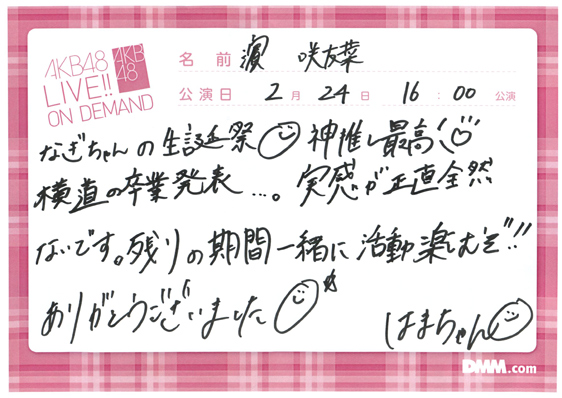 AKB48
LIVE!!
ON DEMAND
AKB
48
名 前 濵 咲友菜
公演日 2月 24日 16:00 公演
なぎちゃんの生誕祭 神推し最高!
横道の卒業発表...。実感が正直全然
ないです。残りの期間一緒に活動楽しむぞ!!
ありがとうございました
はまちゃん
DMM.com